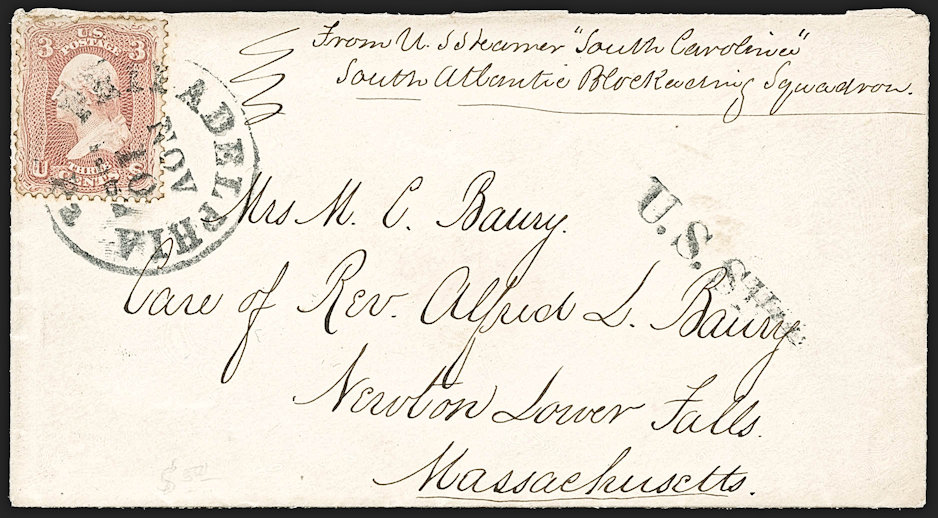 From U. S Steamer "South Carolina"
South Atlantic Blockading Squadron.
3 U.S. 3
POSTAGE
U THREE S
CENTS
PHILADELPHIA
NOV
10
U. S. SHIP
Mrs M. C. Baury.
Care of Rev. Alfred L. Baury
Newton Lower Falls.
Massachusetts.